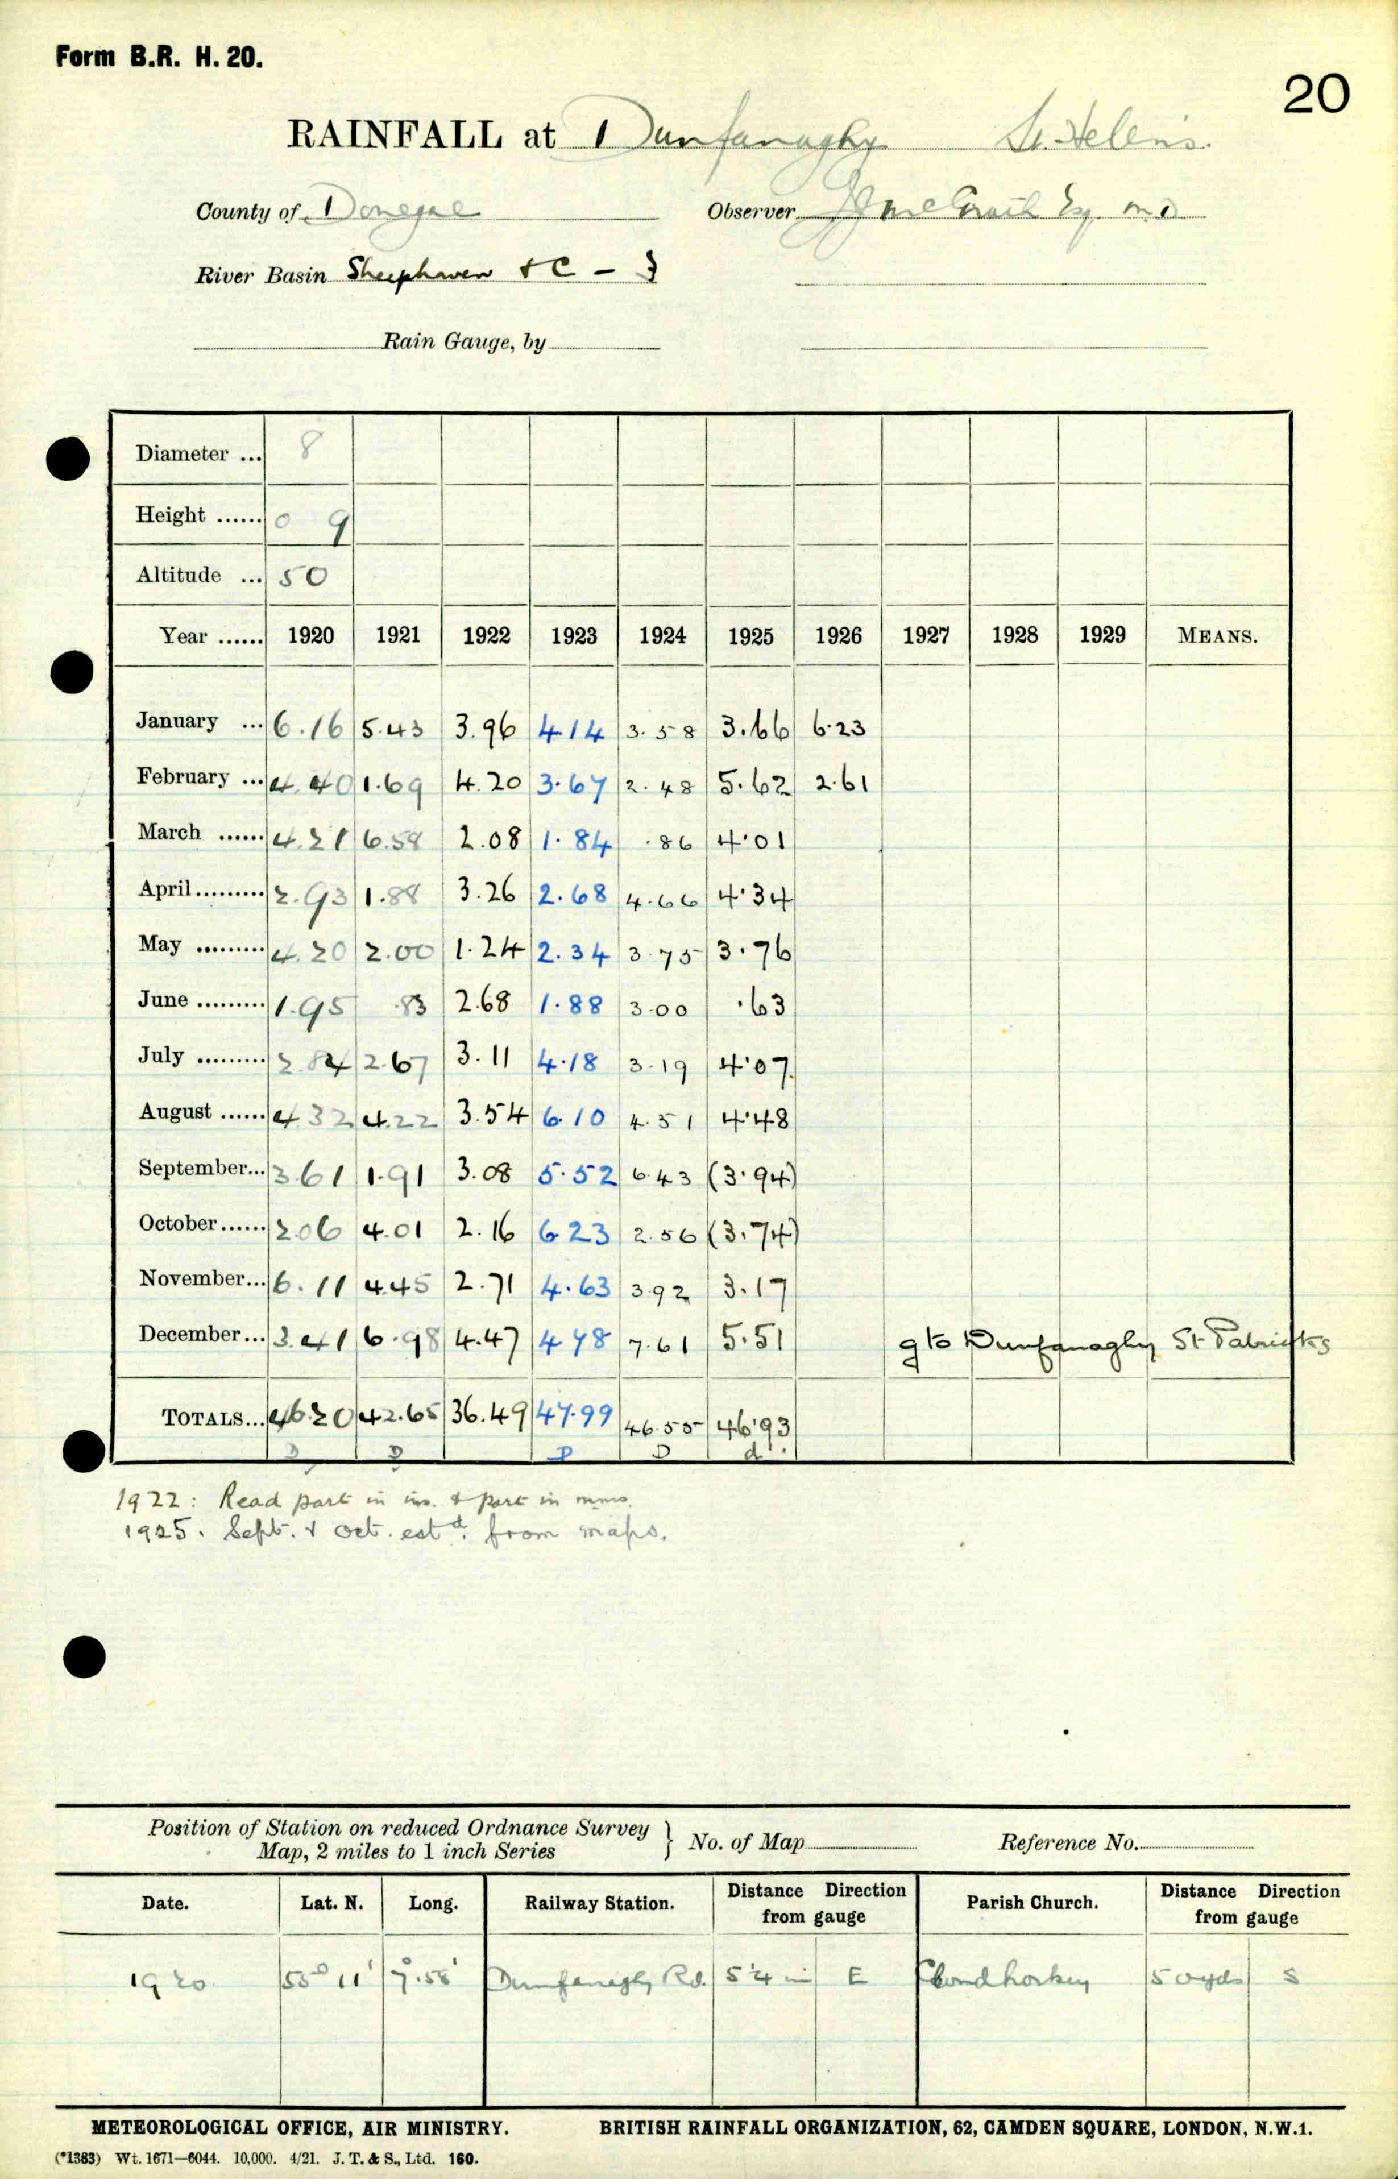 Form B.R. H. 20.
20
RAINFALL at Dunfanaghy St. Helens.
County of Donegal Observer McGrath Esq. M.D
River Basin Sheephaven & C - }
Rain Gauge, by
Diameter ... 8
Height ...... 0 9
Altitude ... 50
Year ...... 1920 1921 1922 1923 1924 1925 1926 1927 1928 1929 MEANS.
January ... 6.16 5.43 3.96 4.14 3.58 3.66 6.23
February ... 4.40 1.69 4.20 3.67 2.48 5.62 2.61
March ...... 4.21 6.58 2.08 1.84 .86 4.01
April ......... 2.93 1.88 3.26 2.68 4.66 4.34
May ......... 4.20 2.00 1.24 2.34 3.75 3.76
June ......... 1.95 .83 2.68 1.88 3.00 .63
July ......... 2.84 2.67 3.11 4.18 3.19 4.07
August ...... 4.32 4.22 3.54 6.10 4.51 4.48
September... 3.61 1.91 3.08 5.52 6.43 (3.94)
October...... 2.06 4.01 2.16 6.23 2.56 (3.74)
November... 6.11 4.45 2.71 4.63 3.92 3.17
December... 3.41 6.98 4.47 4.78 7.61 5.51 g to Dunfanaghy St Patricks
TOTALS... 46.20 42.65 36.49 47.99 46.55 46.93
D D D D d
1922: Read part in ins. & part in mms.
1925. Sept. & Oct. estd. from maps.
Position of Station on reduced Ordnance Survey
Map, 2 miles to 1 inch Series } No. of Map Reference No.
Date. Lat. N. Long. Railway Station. Distance Direction from gauge Parish Church. Distance Direction from gauge
1920 55° 11' 7°.58' Dunfanaghy Rd. 5¼ m E 50 yds S
METEOROLOGICAL OFFICE, AIR MINISTRY. BRITISH RAINFALL ORGANIZATION, 62, CAMDEN SQUARE, LONDON, N.W.1.
(*1383) Wt. 1671—6044. 10,000. 4/21. J. T. & S., Ltd. 160.